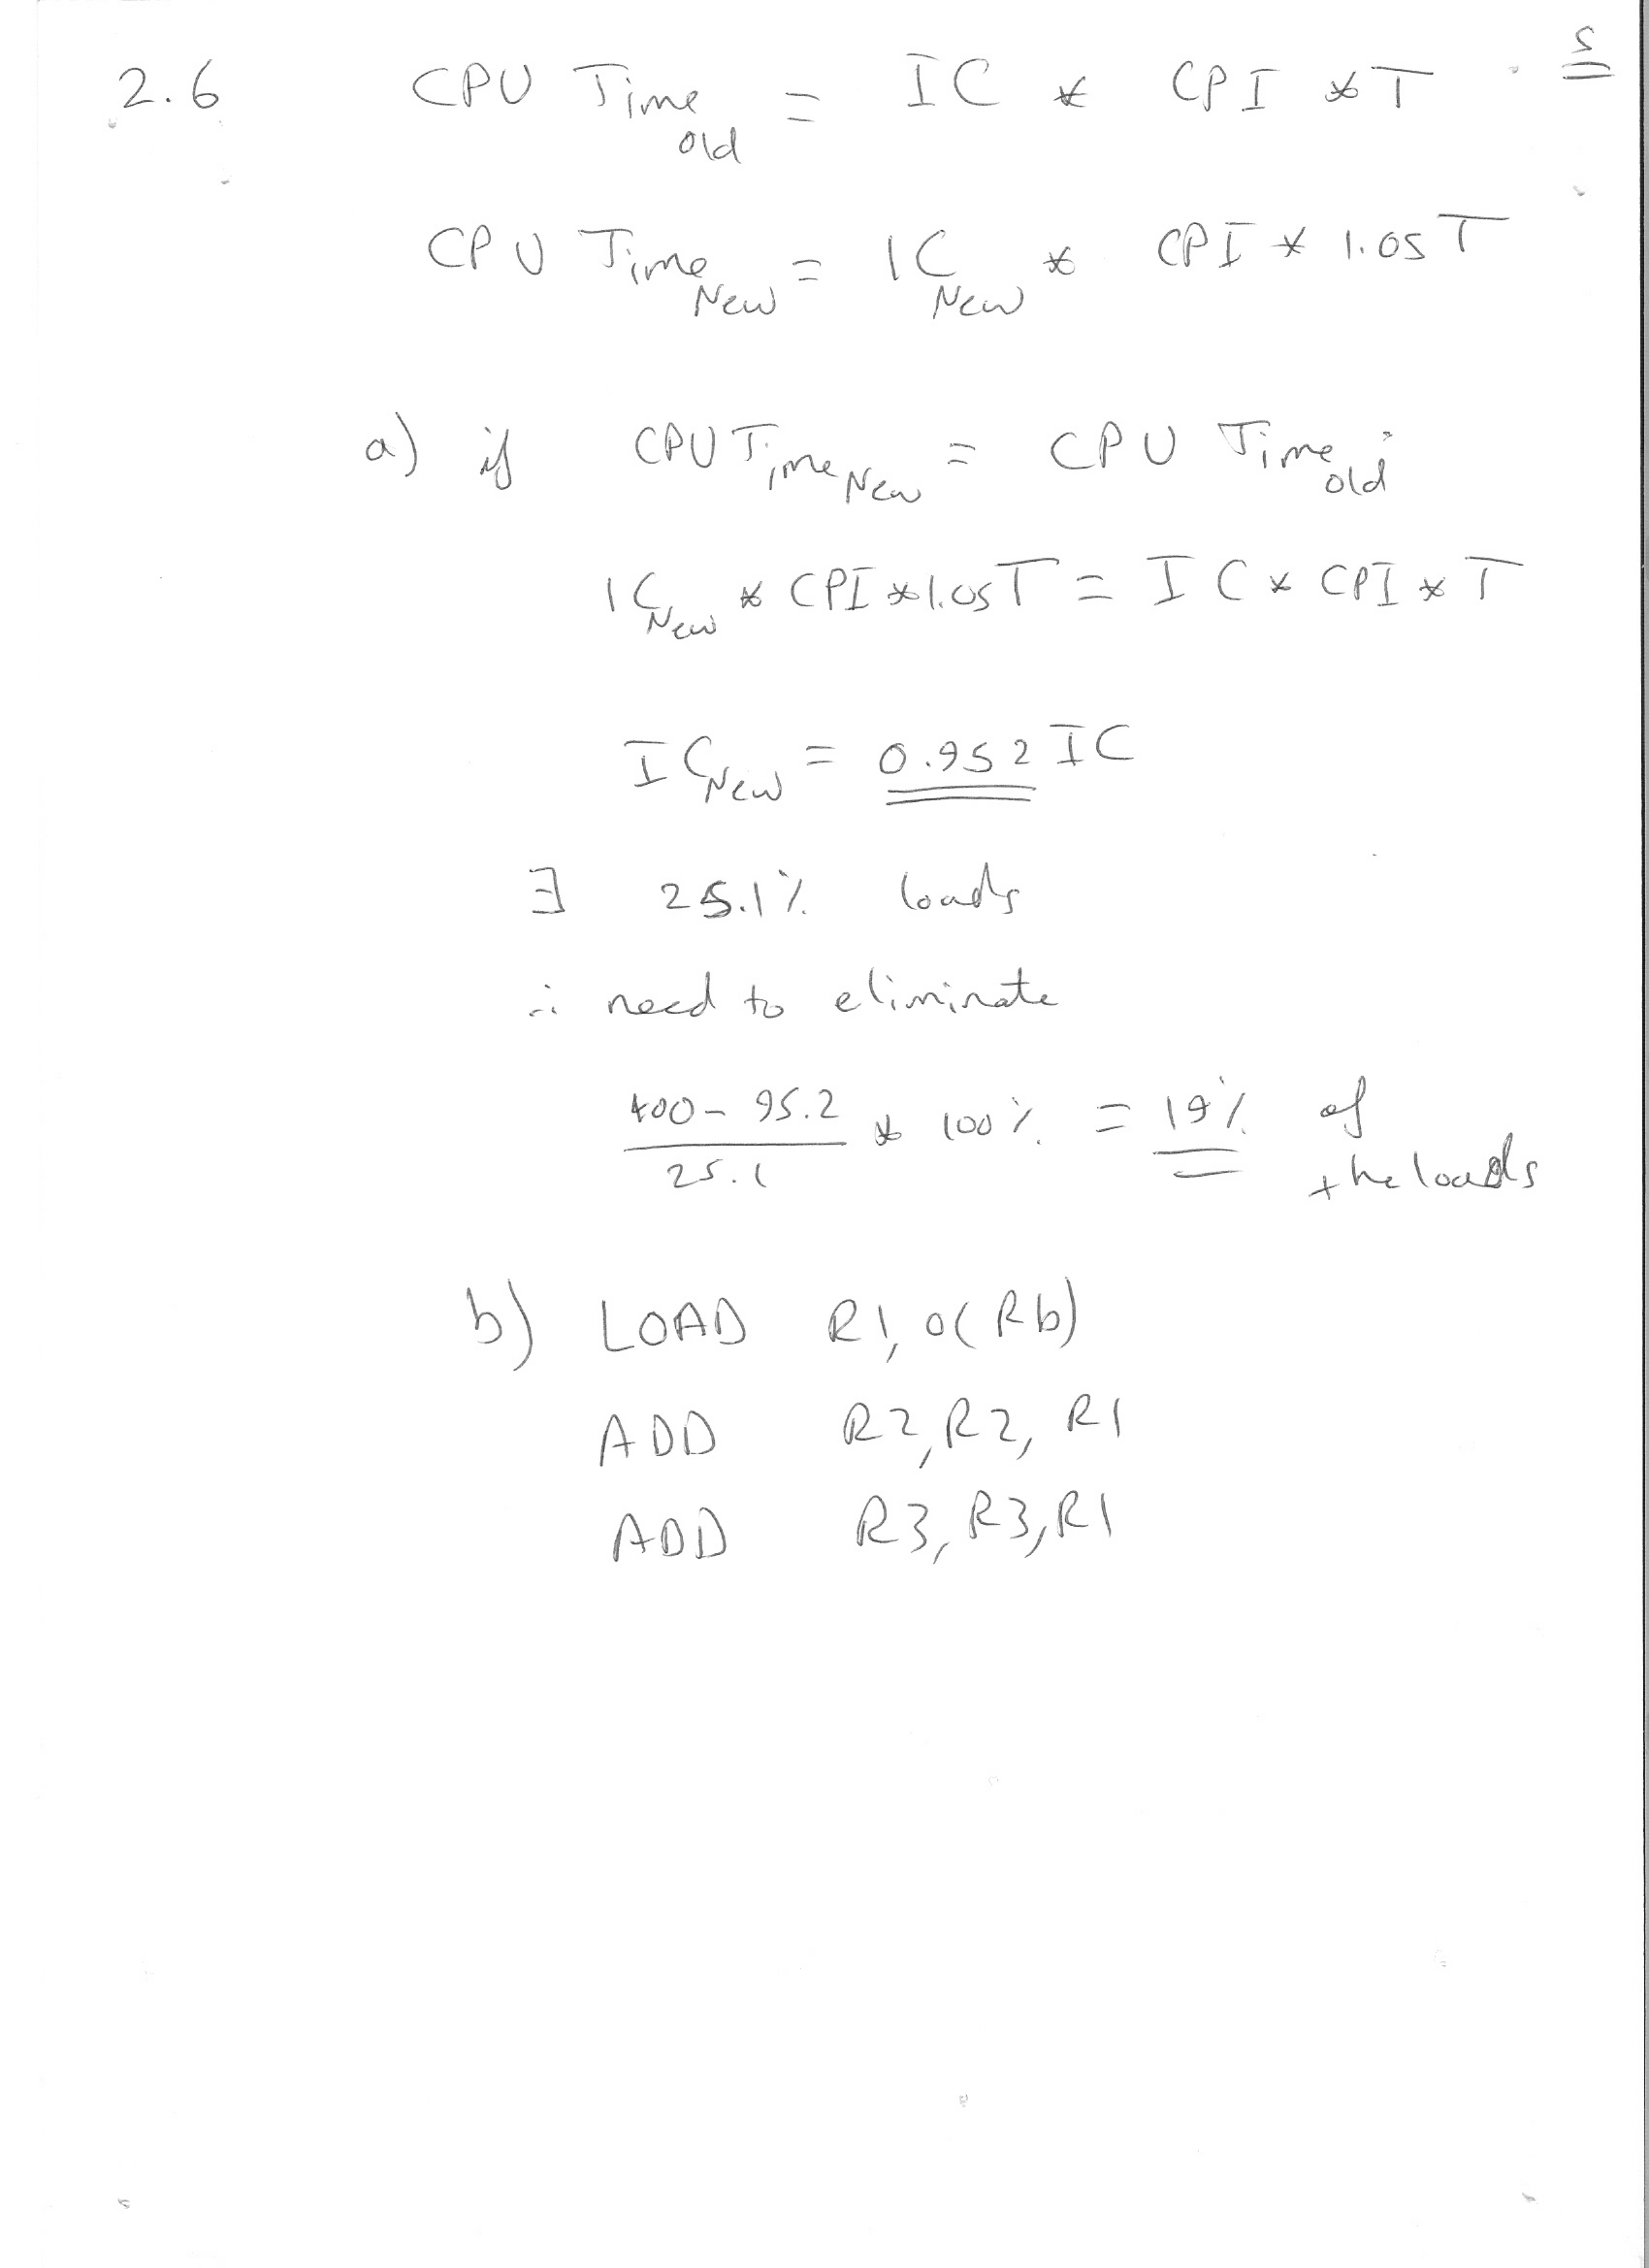 5
2.6 CPU Time old = IC * CPI * T
CPU Time New = IC New * CPI * 1.05T
a) if CPU Time New = CPU Time old
IC New * CPI * 1.05T = IC * CPI * T
IC New = 0.952 IC
∃ 25.1% loads
∴ need to eliminate
100 - 95.2 / 25.1 * 100% = 19% of the loads
b) LOAD R1, 0(Rb)
ADD R2, R2, R1
ADD R3, R3, R1